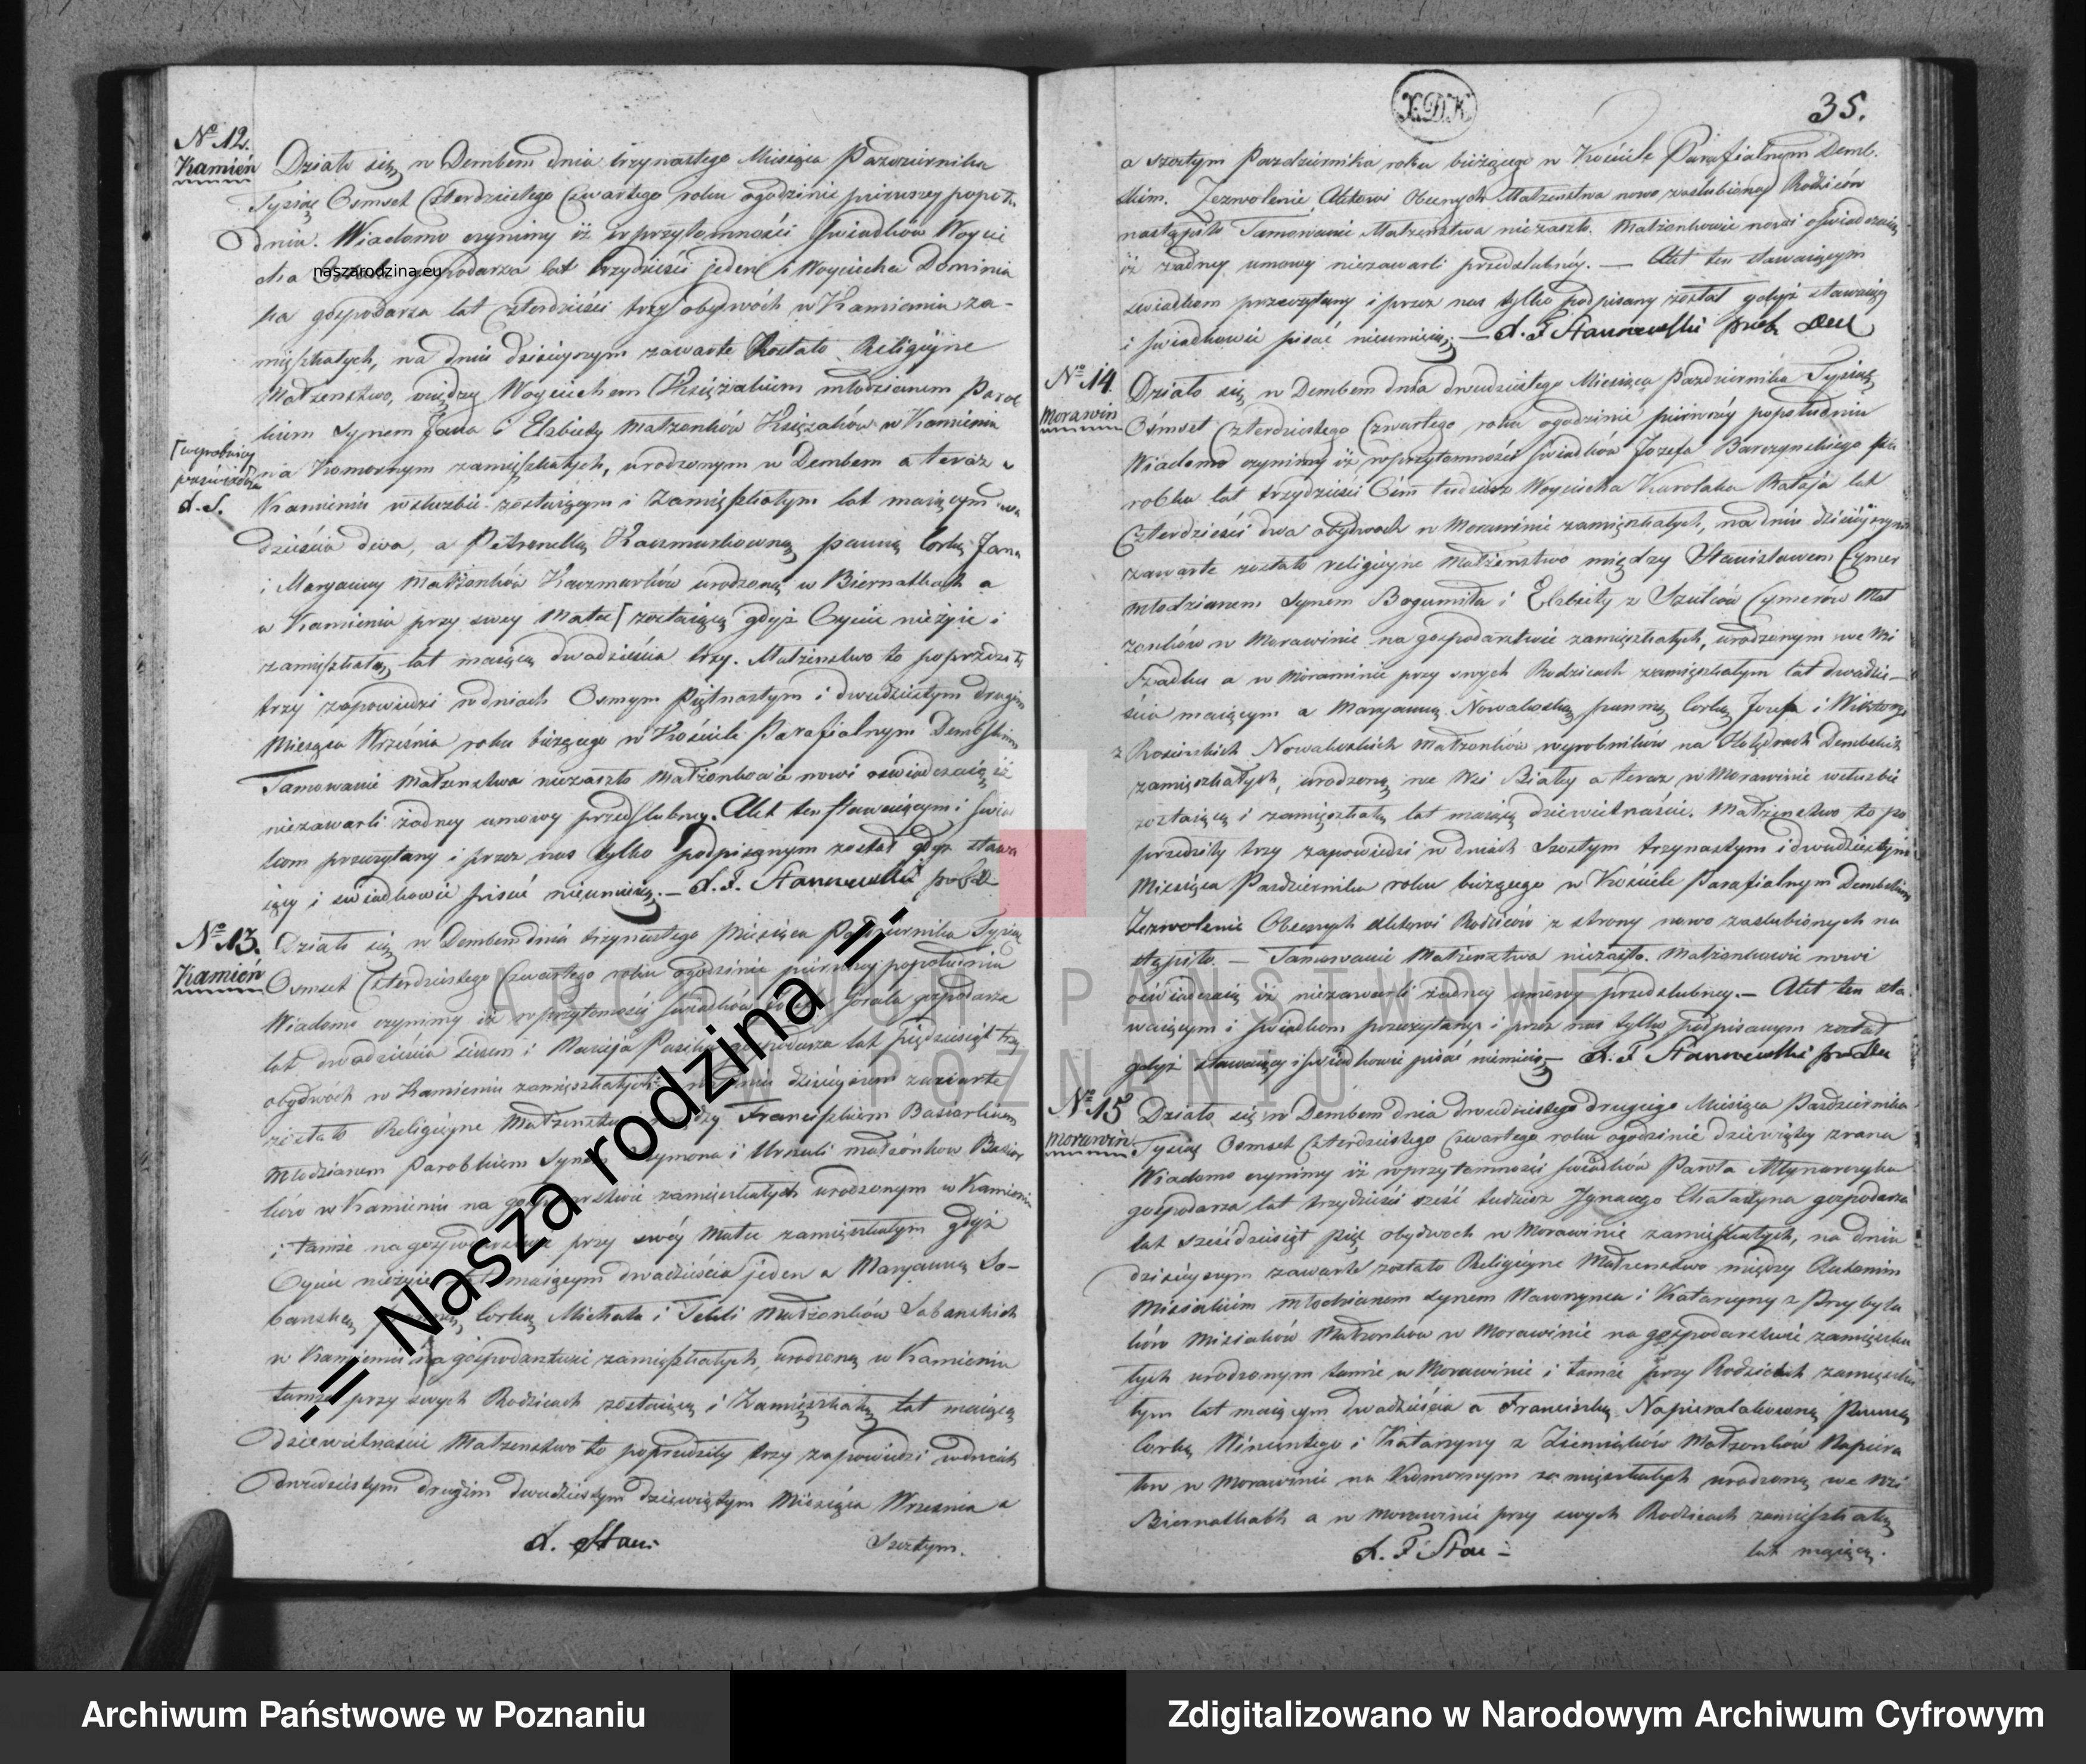 No 12.
Kamień
Działo się w Dembem dnia trzynastego Miesiąca Pazdziernika
Tysiąc Osmset Czterdziestego Czwartego roku ogodzinie pierwszey popołu
dniu. Wiadomo czynimy iż w przytomności Swiadków Woycie
cha gospodarza lat trzydzieści jeden i Woyciecha Dominia
ka gospodarza lat czterdzieści trzy obydwóch w Kamieniu za-
mięszkałych, na dniu dzisieyszym zawarte zostało Religijne
Małzenstwo, między Woyciechem Księżakiem młodzianem Parob
kiem Synem Jana i Elzbiety Małzonków Księzaków w Kamieniu
na Komornym zamięszkałych, urodzonym w Dembem a teraz w
Kamieniu w służbie zostaiącym i zamięszkałym lat maiącym dwa
dzieścia dwa, a Petronellą Kaczmarkowną panną Corką Jana
i Maryanny Małżonków Kaczmarków urodzoną w Biernatkach a
w Kamieniu przy swey Matce zostaiącą gdyż Oyciec nieżyie i
zamięszkałą, lat maiącą dwadzieścia trzy. Małzenstwo to poprzedziły
trzy zapowiedzi w dniach Osmym Piętnastym i dwudziestym drugim
Miesiąca Września roku bieżącego w Kościele Parafialnym Dembskim
Tamowanie Małzenstwa niezaszło Małżonkowie nowi oświadczaią iż
niezawarli żadney umowy przedslubney. Akt ten stawaiącym i swiad
kom przeczytany i przez nas tylko podpisanym został gdyż stawa
iący i swiadkowie pisać nieumieią. —
[wyrobnicy
d. S.
No 13.
Kamień
Działo się w Dembem dnia trzynastego Miesiąca Pazdziernika Tysiąc
Osmset Czterdziestego Czwartego roku ogodzinie pierwszey popołudniu
Wiadomo czynimy iż w przytomności Swiadków Górala gospodarza
lat dwadzieścia siedem i Macieja Pasika gospodarza lat pięćdziesiąt trzy
obydwóch w Kamieniu zamięszkałych na dniu dzisieyszem zawarte
zostało Religijne Małzenstwo między Franciszkiem Basiarkiem
Młodzianem Parobkiem Synem Szymona i Urszuli małżonków Basiar
ków w Kamieniu na gospodarstwie zamięszkałych urodzonym w Kamieniu
i tamże na gospodarstwie przy swéy Matce zamięszkałym gdyż
Oyciec nieżyie lat maiącym dwadzieścia jeden a Maryanną So-
banską panną, Corką Michała i Tekli Małżonków Sobanskich
w Kamieniu na gospodarstwie zamięszkałych, urodzoną w Kamieniu
tamże przy swych Rodzicach zostaiącą i Zamięszkałą lat maiącą
dziewietnaście Małzenstwo to poprzedziły trzy zapowiedzi w dniach
dwudziestym drugim dwudziestym dziewiątym Miesiąca Września a
Szóstym.
X.D.K
35.
a szóstym Pazdziernika roku bieżącego w Kościele Parafialnym Demb.
skim. Zezwolenie Aktowi Obecnych Małzenstwa nowo zaslubionego Rodziców
nastąpiło Tamowanie Małzenstwa niezaszło. Małżonkowie nowi oświadczaią
iż zadney umowy niezawarli przedslubnéy. — Akt ten stawaiącym
swiadkom przeczytany i przez nas tylko podpisany został gdyż stawaiący
i swiadkowie pisać nieumieią. —
No 14
Morawin
Działo się w Dembem dnia dwudziestego Miesiąca Pazdziernika Tysiąc
Osmset Czterdziestego Czwartego roku ogodzinie pierwszéy popołudniu
Wiadomo czynimy iż w przytomności Swiadków Jozefa Barczynskiego pa
robka lat trzydzieści Osm tudzież Woyciecha Karolaka Rataja lat
Czterdzieści dwa obydwoch w Morawinie zamięszkałych, na dniu dzisieyszym
zawarte zostało religijne Małżenstwo między Stanisławem Cymer
młodzianem Synem Bogumiła i Elzbiety z Szulców Cymerów Mał
zonków w Morawinie na gospodarstwie zamięszkałych, urodzonym we Wsi
Szadku a w Morawinie przy swych Rodzicach zamięszkałym lat dwadzie-
ścia maiącym a Maryanną Nowakoską panną Corką Jozefa i Wiktoryi
z Rosinskich Nowakoskich Małzonków wyrobników na Holędrach Dembskich
zamięszkałych, urodzoną we Wsi Białey a teraz w Morawinie w służbie
zostaiącą i zamięszkałą lat maiącą dziewietnaście. Małzenstwo to po
przedziły trzy zapowiedzi w dniach Szostym trzynastym i dwudziestym
Miesiąca Pazdziernika roku bieżącego w Kościele Parafialnym Dembskim
Zezwolenie Obecnych Aktowi Rodziców z strony nowo zaslubionych na
stąpiło. — Tamowanie Małzenstwa niezaszło. Małzonkowie nowi
oświadczaią iż niezawarli żadney umowy przedslubney. — Akt ten sta
waiącym i swiadkom przeczytany i przez nas tylko podpisanym został
gdyż stawaiący i swiadkowie pisać nieumieią —
No 15
Morawin
Działo się w Dembem dnia dwudziestego drugiego Miesiąca Pazdziernika
Tysiąc Osmset Czterdziestego Czwartego roku ogodzinie dziewiątey zrana
Wiadomo czynimy iż w przytomności Swiadków Pawła Młynarczyka
gospodarza lat trzydzieści sześć tudzież Ignacego Chatastyna gospodarza
lat sześćdziesiąt pięć obydwoch w Morawinie zamięszkałych, na dniu
dzisieyszym zawarte zostało Religijne Małzenstwo między Antonim
Misiakiem młodzianem synem Wawrzynca i Katarzyny z Przybyla
ków Misiaków Małzonków w Morawinie na gospodarstwie zamięszka
łych urodzonym tamże w Morawinie i tamże przy Rodzicach zamięszka
łym lat maiącym dwadzieścia a Franciszką Napieralakowną Panną
Corką Wincentego i Katarzyny z Ziemiąków Małzonków Napiera
łów w Morawinie na Komornym zamięszkałych urodzoną we wsi
Biernatkach a w Morawinie przy swych Rodzicach zamięszkałą
lat maiącą.
naszarodzina.eu
-=| Nasza rodzina |=-
ARCHIWUM PAŃSTWOWE
W POZNANIU
Archiwum Państwowe w Poznaniu
Zdigitalizowano w Narodowym Archiwum Cyfrowym